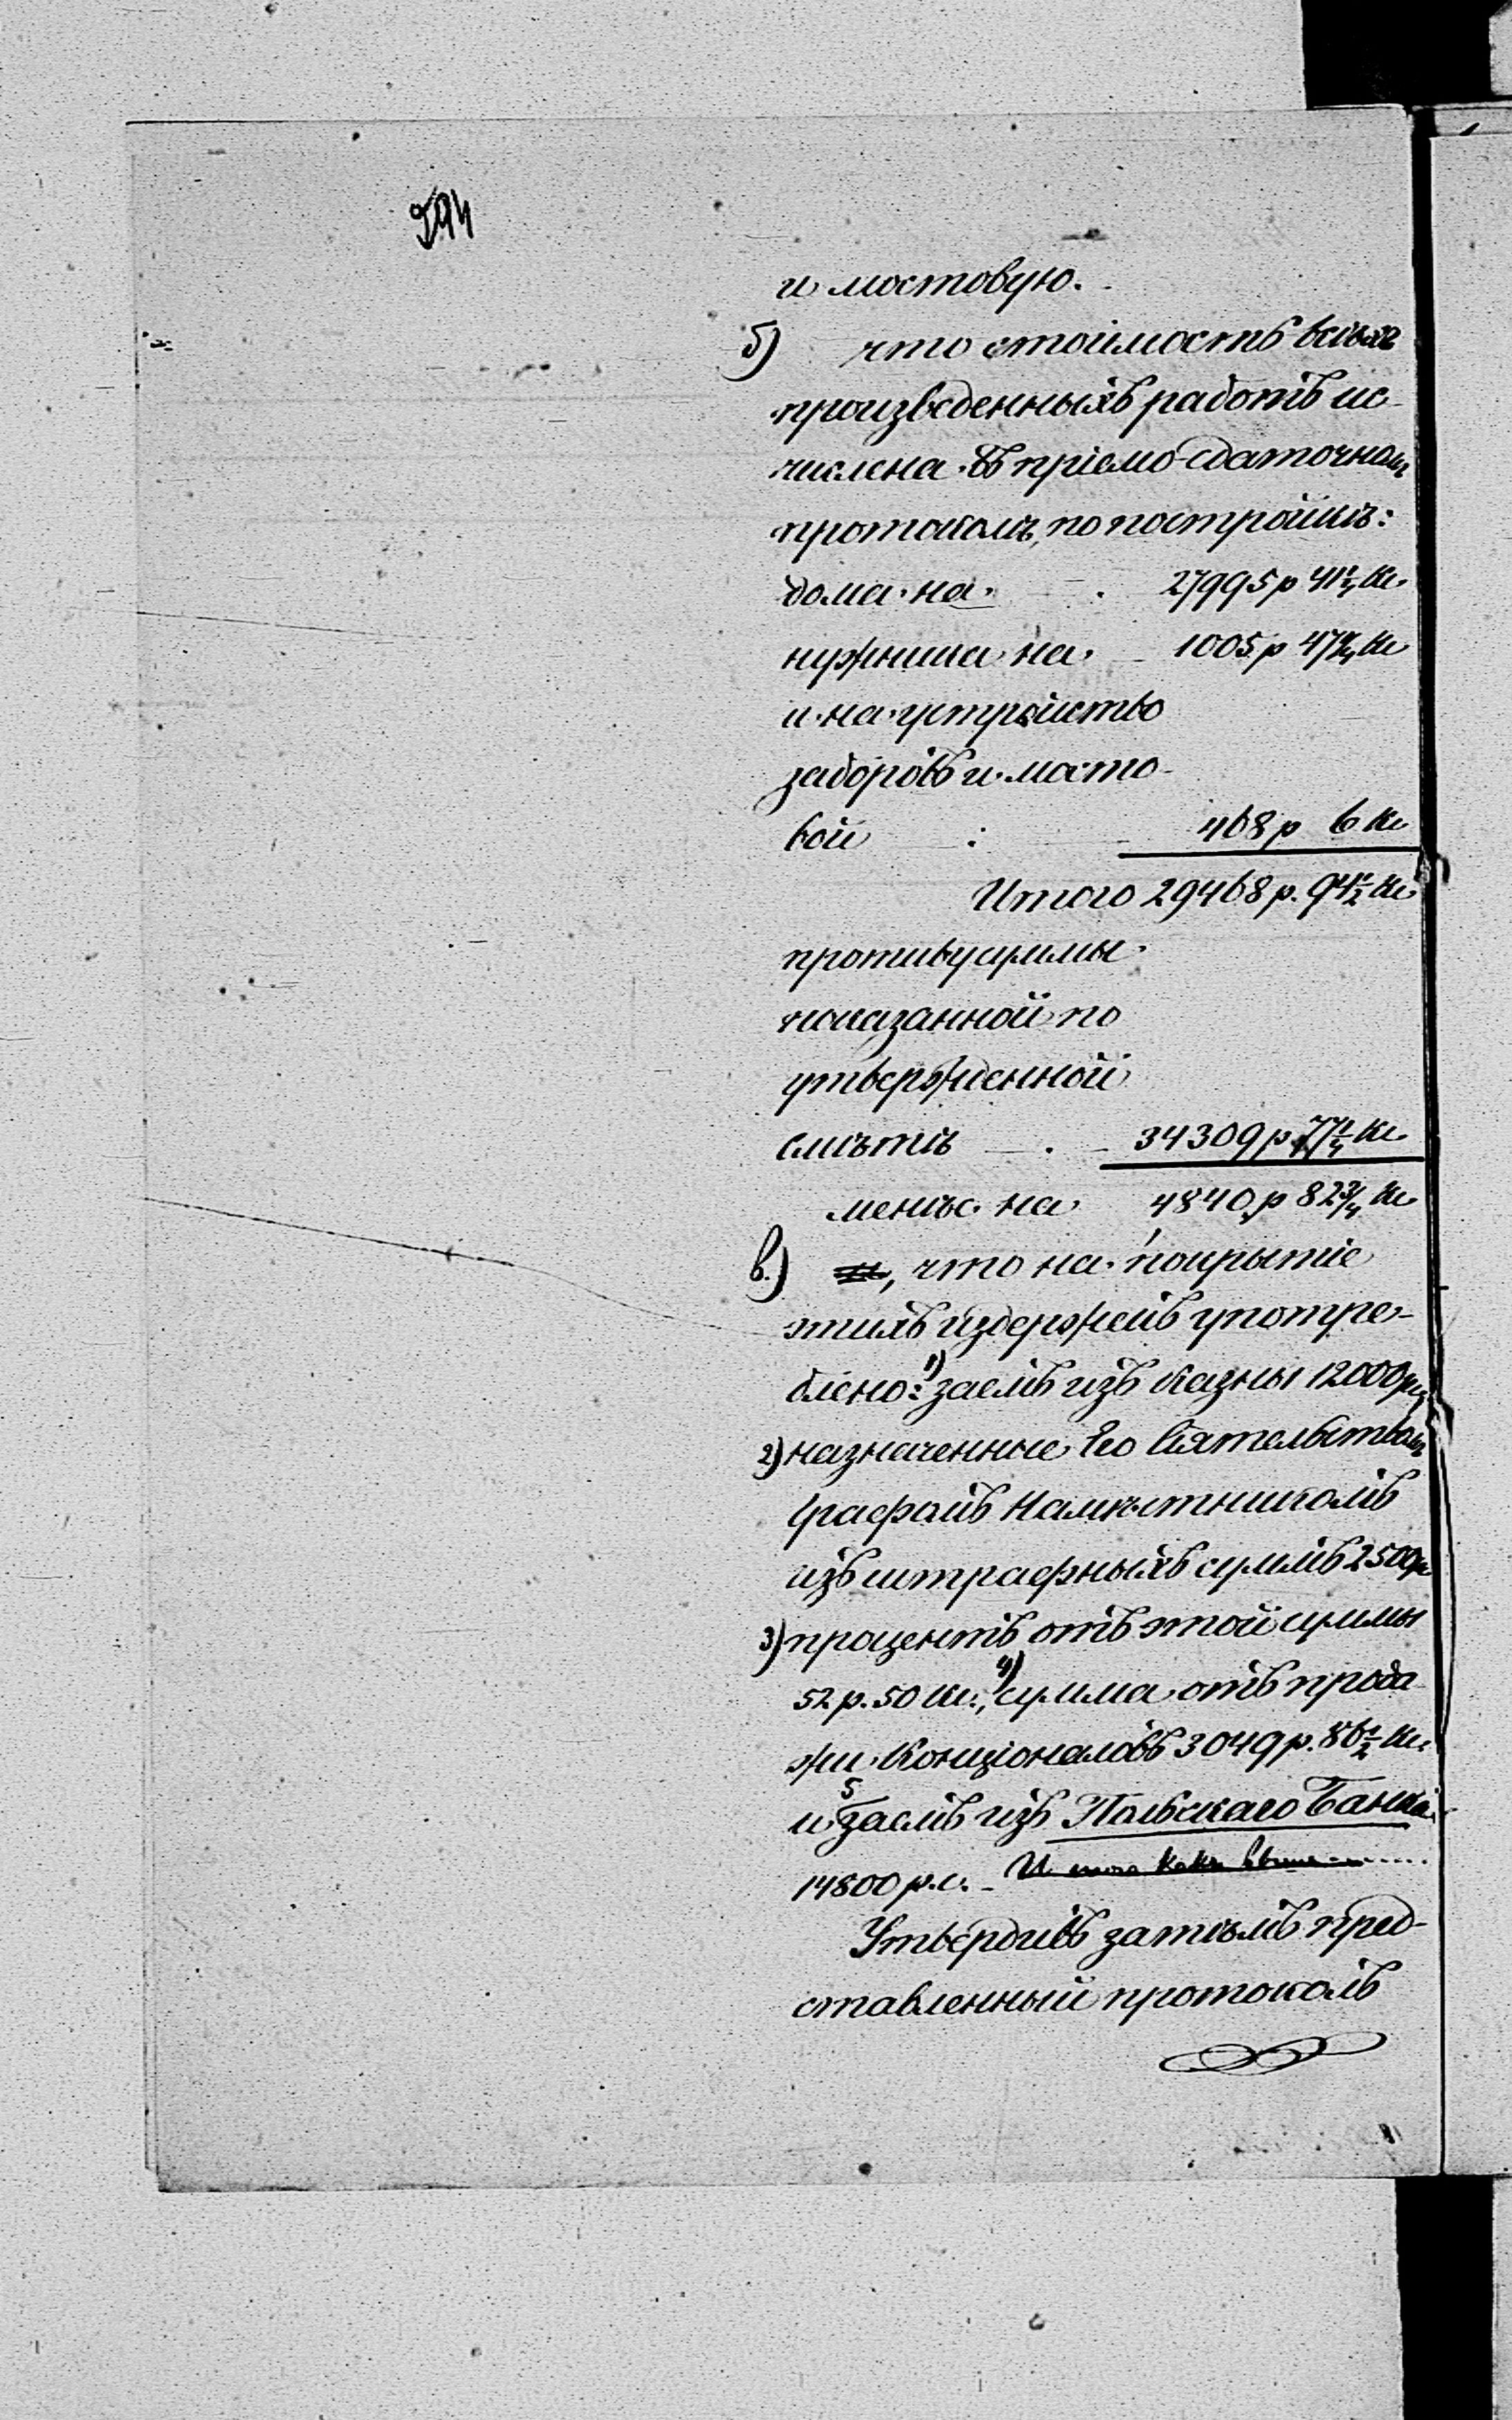 и мостовую.
б) что стоимость всѣхъ
произведенныхъ работъ ис-
числена въ пріемо-сдаточном
протоколѣ, по постройкѣ:
дома на . 27995 р 41¼ к.
нужника на 1005 р 47¼ к
и на устройство
заборовъ и мосто-
вой . 468 р 6 к
Итого 29468 р. 94½ к
противу суммы
показанной по
утвержденной
смѣтѣ . 34309 р 77¼ к
менѣе на 4840 р 82¾ к
в.) что на покрытіе
этихъ издержекъ употре-
блено: 1) заемъ изъ казны 12000 р.
2) назначенные Его Сіятельством
Графомъ Намѣстникомъ
изъ штрафныхъ суммъ 2500 р
3) процентъ отъ этой суммы
52 р. 50 к., 4) сумма отъ прода
жи кончіоналовъ 3049 р. 86½ к.
и 5 заемъ изъ Польскаго Банка
14800 р. с. И того какъ выше
Утвердивъ затѣмъ пред-
ставленный протоколъ